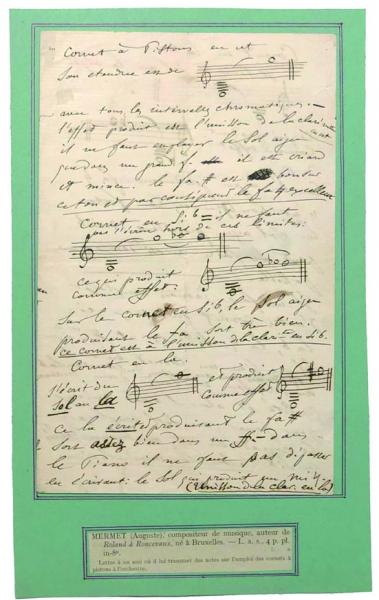 Cornet à Pistons en ut
Son etendue est de
avec tous les intervalles chromatiques. —
l'effet produit est l'unisson de la clarinette
en ut
il ne faut employer le Sol aigu
que dans un grand ff il est criard
et mince. le fa # est bon sur
ce ton et par conséquent le fa ♮ excellent
Cornet en Si b = il ne faut
pas l'écrire hors de ces limites:
ce qui produit
comme effet.
Sur le cornet en si b, le Sol aigu
produisant le fa sort très bien.
ce cornet est à l'unisson de la clar. en si b.
Cornet en la.
s'écrit du
Sol au la
et produit
comme effet
ce la écrit produisant le fa #
Sort assez bien dans un ff — Dans
le Piano il ne faut pas dépasser
en écrivant: le Sol qui produit un mi
(l'unisson de la clar. en la)
MERMET (Auguste), compositeur de musique, auteur de
Roland à Roncevaux, né à Bruxelles. — L. a. s., 4 p. pl.
in-8º.
Lettre à un ami où il lui transmet des notes sur l'emploi des cornets à
pistons à l'orchestre.